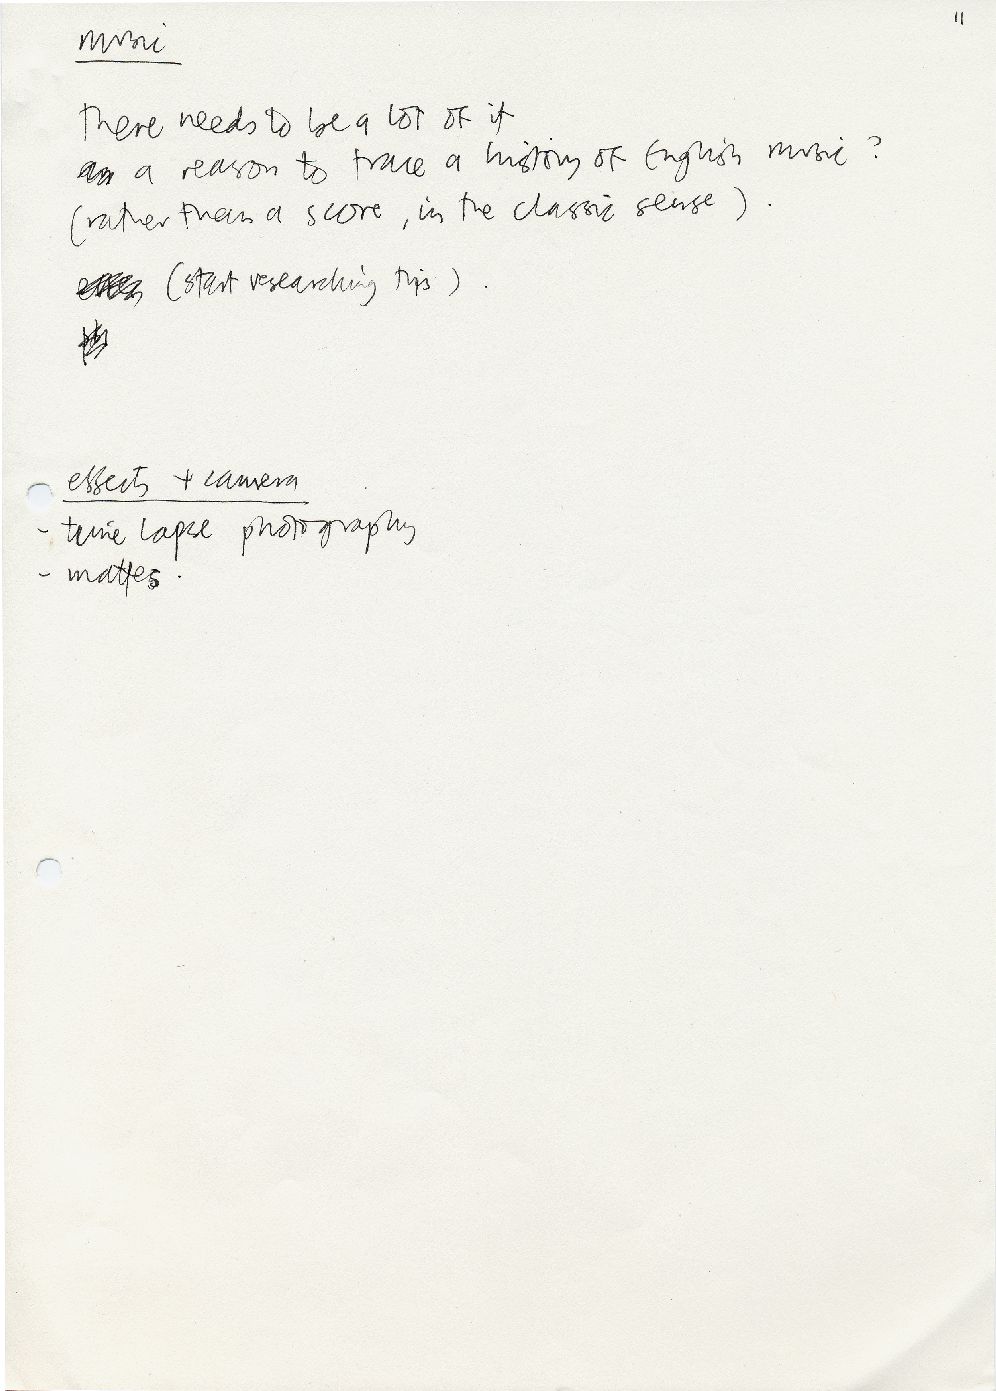 11
music
there needs to be a lot of it
a reason to trace a history of English music?
(rather than a score, in the classic sense).
(start researching this).
effects + camera
- time lapse photography
- mattes.